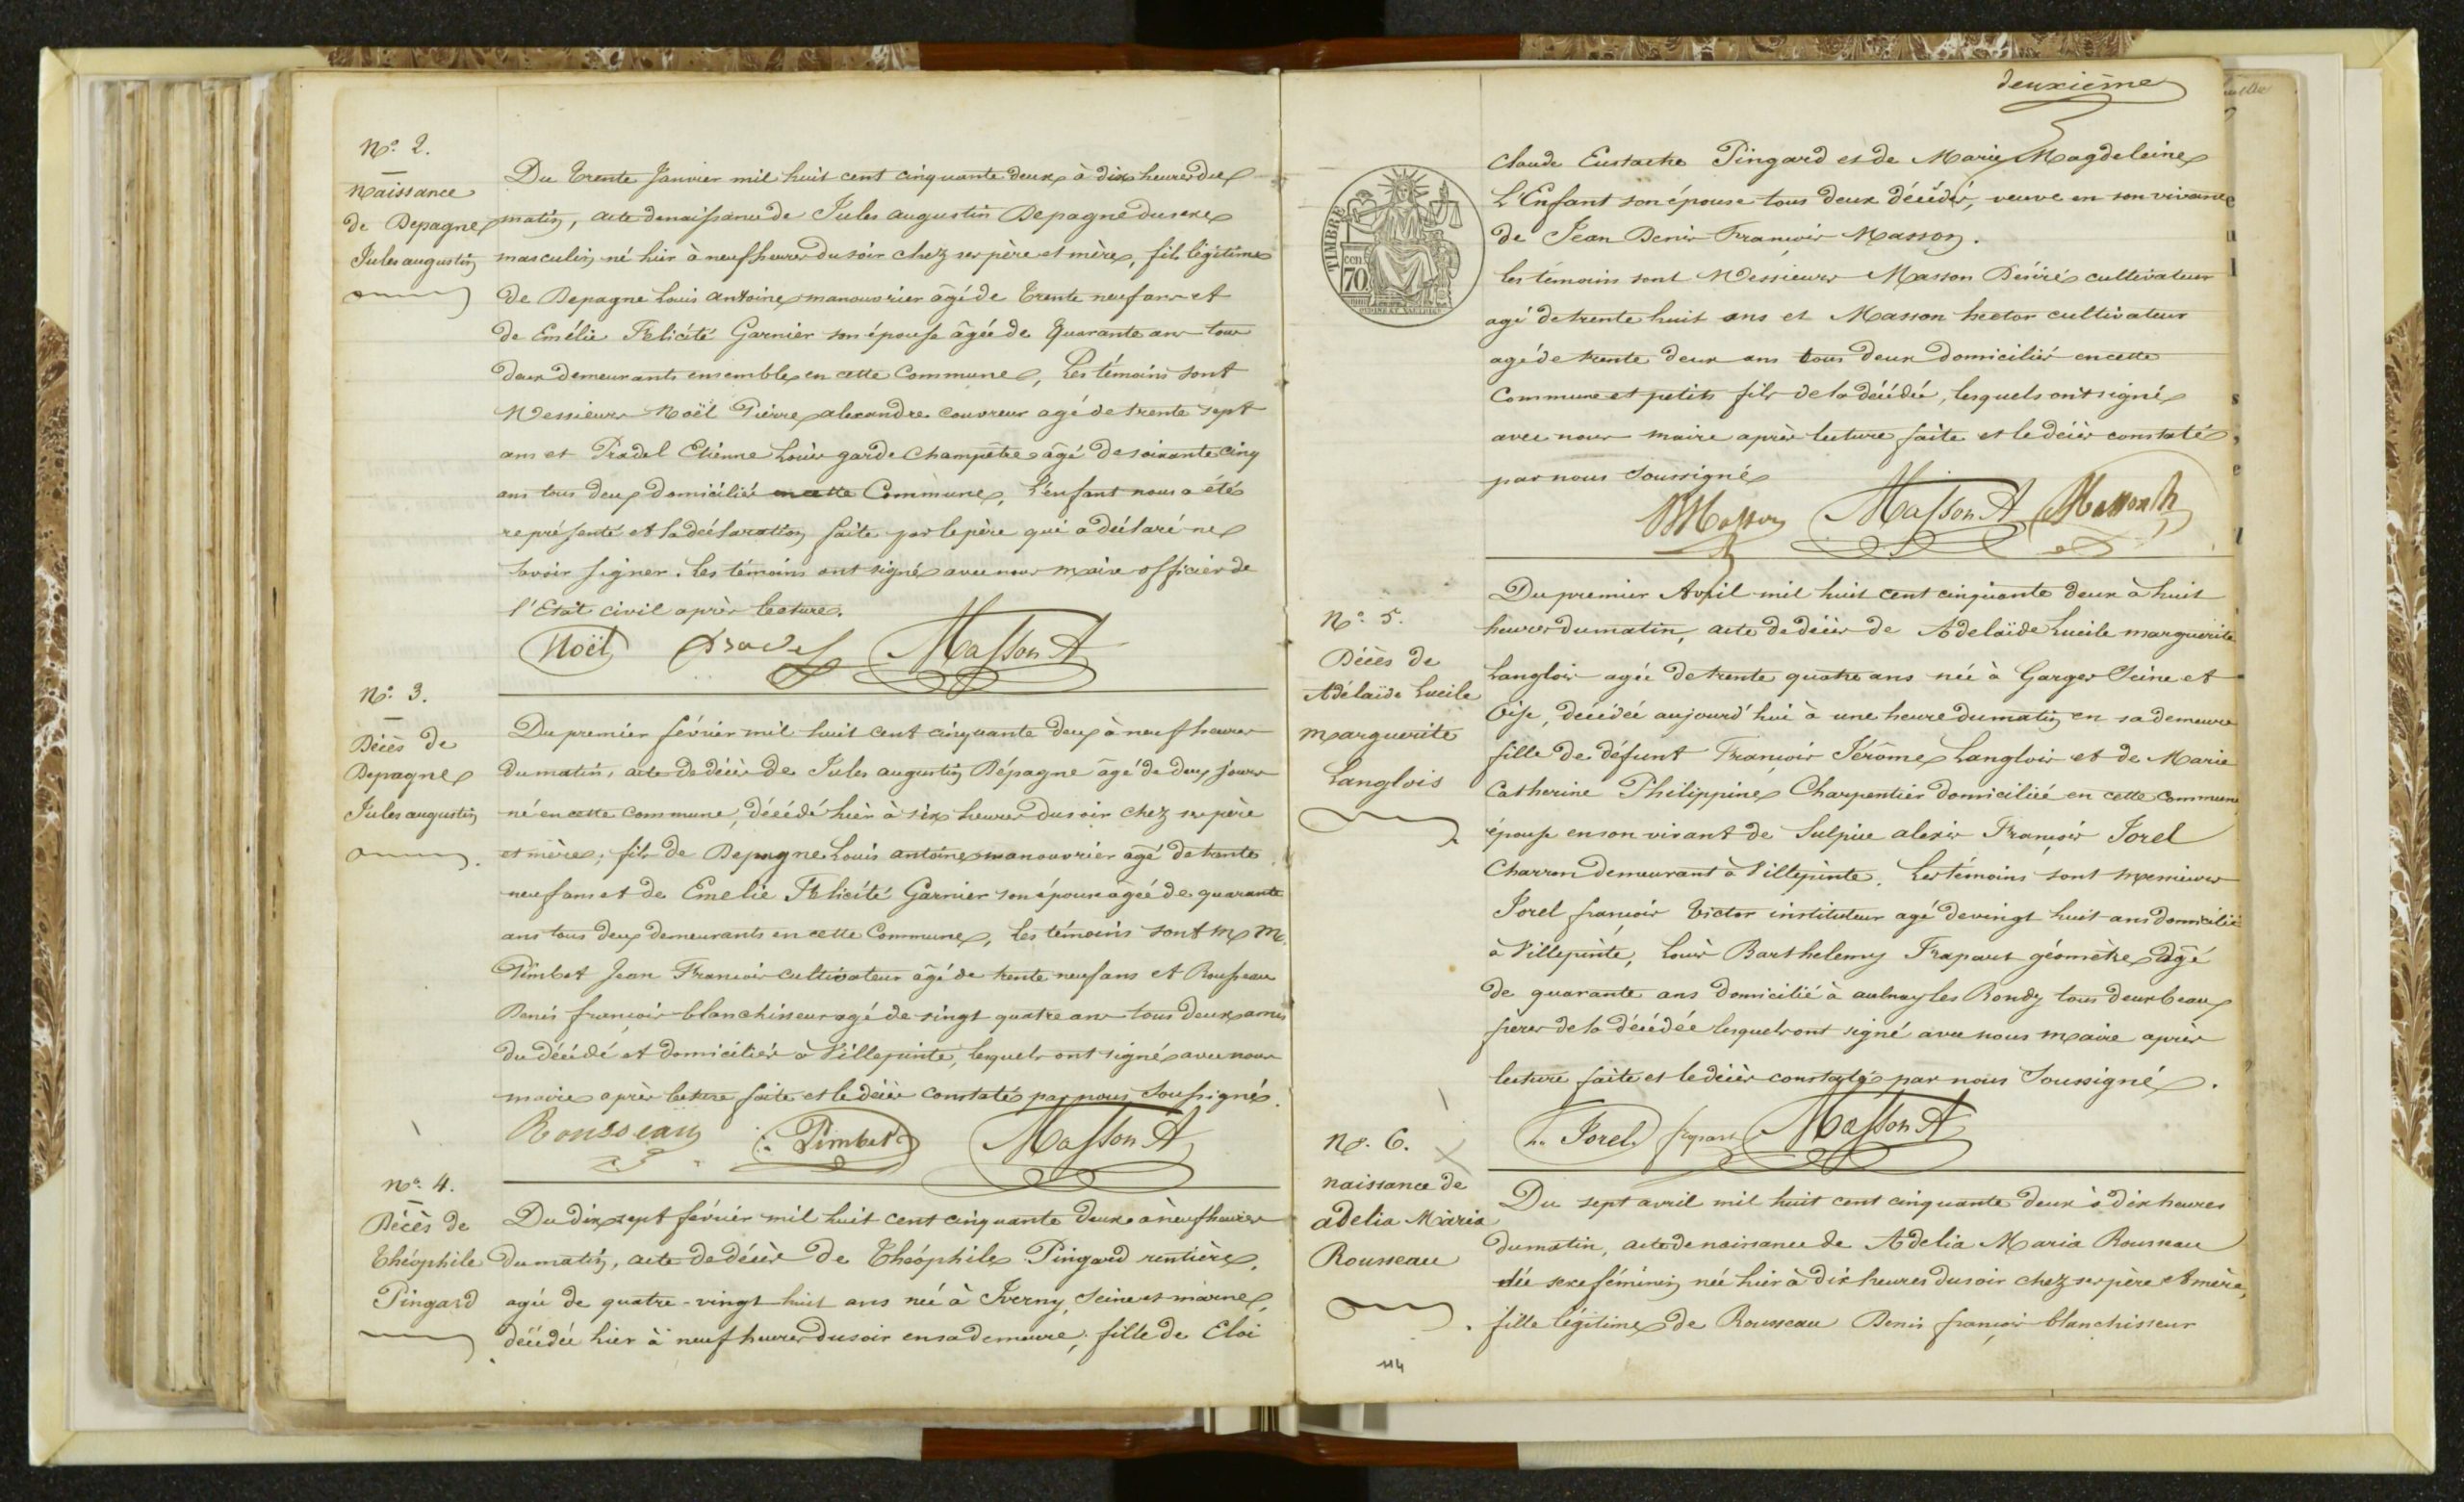 N° 2.
Naissance
de Depagne
Jules augustin
Du trente Janvier mil huit cent cinquante deux à dix heures du
matin, acte de naissance de Jules augustin Depagne du sexe
masculin né hier à neuf heures du soir chez ses père et mère, fils légitime
de Depagne Louis antoine manouvrier âgé de trente neuf ans et
de Emélie Félicité Garnier son épouse âgée de quarante ans tous
deux demeurants ensemble en cette Commune, Les témoins sont
Messieurs Noël Pierre alexandre couvreur agé de trente sept
ans et Pradel Etienne Louis garde Champêtre âgé de soixante cinq
ans tous deux domiciliés en cette Commune, L'enfant nous a été
représenté et la déclaration faite par le père qui a déclaré ne
savoir signer. Les témoins ont signé avec nous maire officier de
l'Etat civil après lecture.
Noël Pradel Masson A
N° 3.
Décès de
Depagne
Jules augustin
Du premier février mil huit cent cinquante deux à neuf heures
du matin, acte de décès de Jules augustin Dépagne âgé de deux jours
né en cette commune, décédé hier à six heures du soir chez ses père
et mère, fils de Depagne Louis antoine manouvrier agé de trente
neuf ans et de Emelie Félicité Garnier son épouse âgée de quarante
ans tous deux demeurants en cette Commune, les témoins sont M M.
Pimbet Jean Francois cultivateur âgé de trente neuf ans et Rousseau
Denis francois blanchisseur agé de vingt quatre ans tous deux amis
du décédé et domiciliés à Villepinte, lesquels ont signé avec nous
maire après lecture faite et le décès constaté par nous Soussigné.
Rousseau Pimbet Masson A
N° 4.
Décès de
Théophile
Pingard
Du dix sept février mil huit cent cinquante deux à neuf heures
du matin, acte de décès de Théophile Pingard rentière,
agée de quatre-vingt huit ans née à Iverny, Seine et marne,
décédée hier à neuf heures du soir en sa demeure, fille de Eloi
deuxième
TIMBRE
70
Claude Eustache Pingard et de Marie Magdeleine
L'Enfant son épouse tous deux décédés, veuve en son vivant
de Jean Denis François Masson.
les témoins sont Messieurs Masson Désiré cultivateur
agé de trente huit ans et Masson hector cultivateur
agé de trente deux ans tous deux domiciliés en cette
Commune et petits fils de la décédée, lesquels ont signé
avec nous maire après lecture faite et le décès constaté
par nous Soussigné
Masson Masson A Masson h
N° 5.
Décès de
Adélaïde Lucile
Marguerite
Langlois
Du premier Avril mil huit cent cinquante deux à huit
heures du matin, acte de décès de Adelaïde Lucile marguerite
Langlois agée de trente quatre ans née à Garges Seine et
Oise, décédée aujourd'hui à une heure du matin en sa demeure
fille de défunt François Jérôme Langlois et de Marie
Catherine Philippine Charpentier domiciliée en cette Commune
épouse en son vivant de Sulpice alexis François Jorel
Charron demeurant à Villepinte. Les témoins sont messieurs
Jorel françois Victor instituteur agé de vingt huit ans domicilié
à Villepinte, Louis Barthelemy Frapart géomètre âgé
de quarante ans domicilié à aulnay les Bondy tous deux beaux
frères de la décédée lesquels ont signé avec nous maire après
lecture faite et le décès constaté par nous Soussigné.
Jorel frapart Masson A
N°. 6.
naissance de
adelia Maria
Rousseau
Du sept avril mil huit cent cinquante deux à dix heures
du matin, acte de naissance de Adelia Maria Rousseau
du sexe féminin née hier à dix heures du soir chez ses père et mère,
fille légitime de Rousseau Denis françois blanchisseur
114